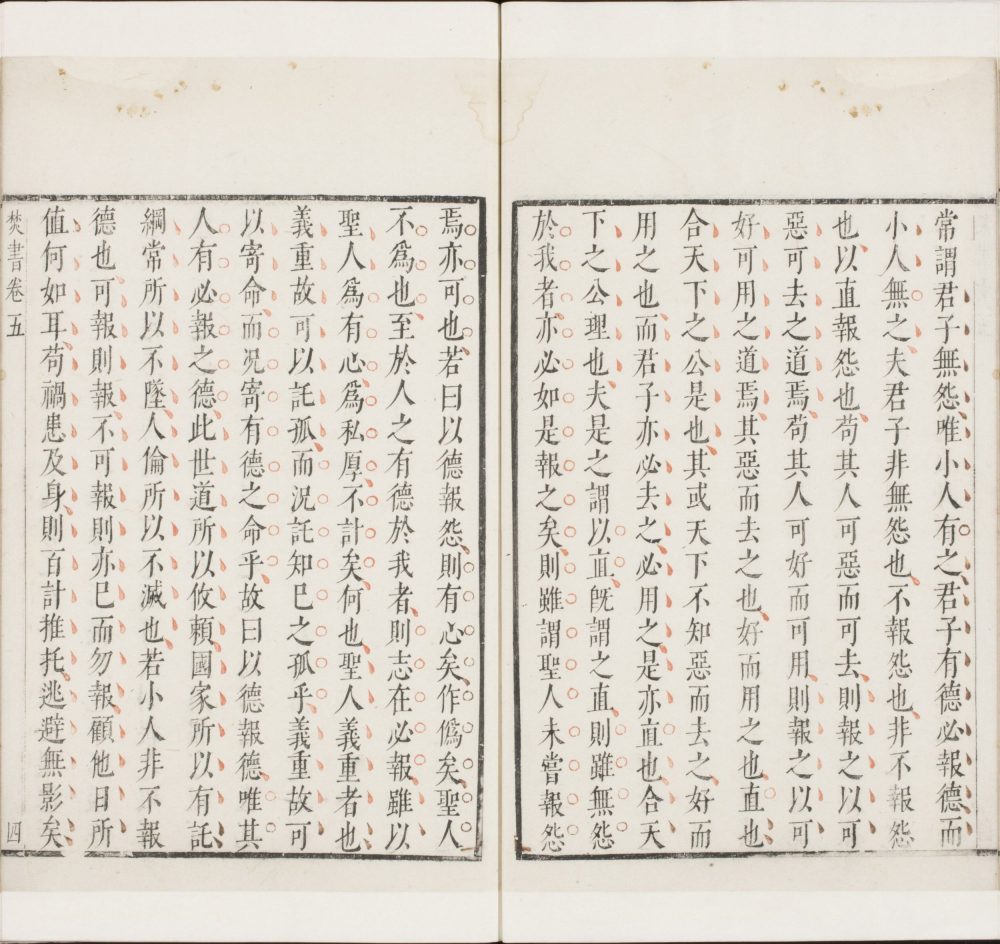 常謂君子無怨唯小人有之君子有德必報德而
小人無之夫君子非無怨也不報怨也非不報怨
也以直報怨也苟其人可惡而可去則報之以可
惡可去之道焉苟其人可好而可用則報之以可
好可用之道焉其惡而去之也好而用之也直也
合天下之公是也其或天下不知惡而去之好而
用之也而君子亦必去之必用之是亦直也合天
下之公理也夫是之謂以直旣謂之直則雖無怨
於我者亦必如是報之矣則雖謂聖人未嘗報怨
焉亦可也若曰以德報怨則有心矣作僞矣聖人
不爲也至於人之有德於我者則志在必報雖以
聖人爲有心爲私厚不計矣何也聖人義重者也
義重故可以託孤而況託知已之孤乎義重故可
以寄命而況寄有德之命乎故曰以德報德唯其
人有必報之德此世道所以攸賴國家所以有託
綱常所以不墜人倫所以不滅也若小人非不報
德也可報則報不可報則亦已而勿報顧他日所
值何如耳苟禍患及身則百計推托逃避無影矣
焚書卷五
四